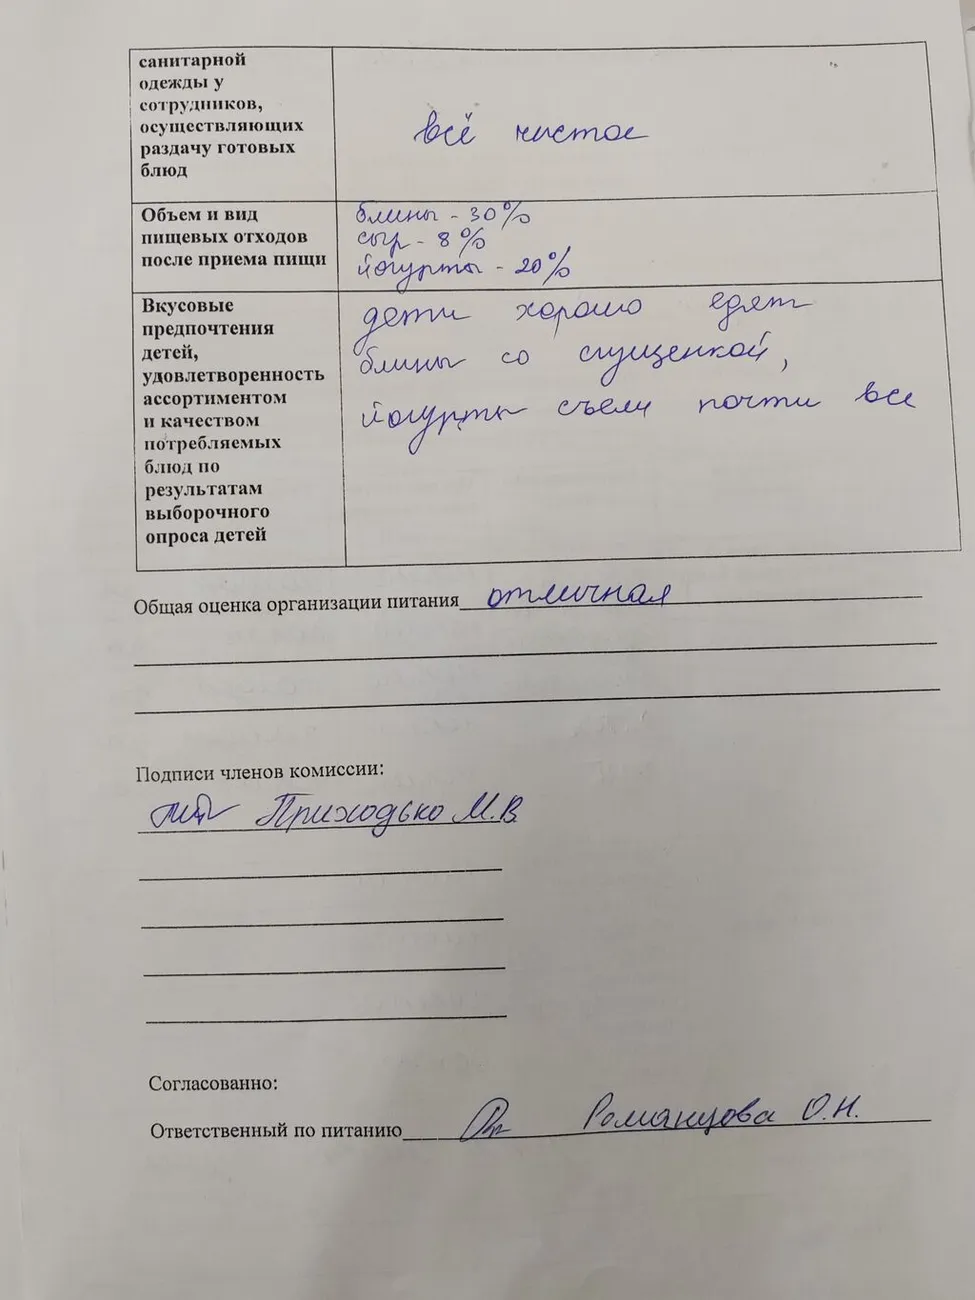 санитарной
одежды у
сотрудников,
осуществляющих
раздачу готовых
блюд
всё чистое
Объем и вид
пищевых отходов
после приема пищи
блины - 30%
сыр - 8%
йогурты - 20%
Вкусовые
предпочтения
детей,
удовлетворенность
ассортиментом
и качеством
потребляемых
блюд по
результатам
выборочного
опроса детей
дети хорошо едят
блины со сгущенкой,
йогурты съели почти все
Общая оценка организации питания отличная
Подписи членов комиссии:
Приходько М.В
Согласованно:
Ответственный по питанию Романцова О.Н.